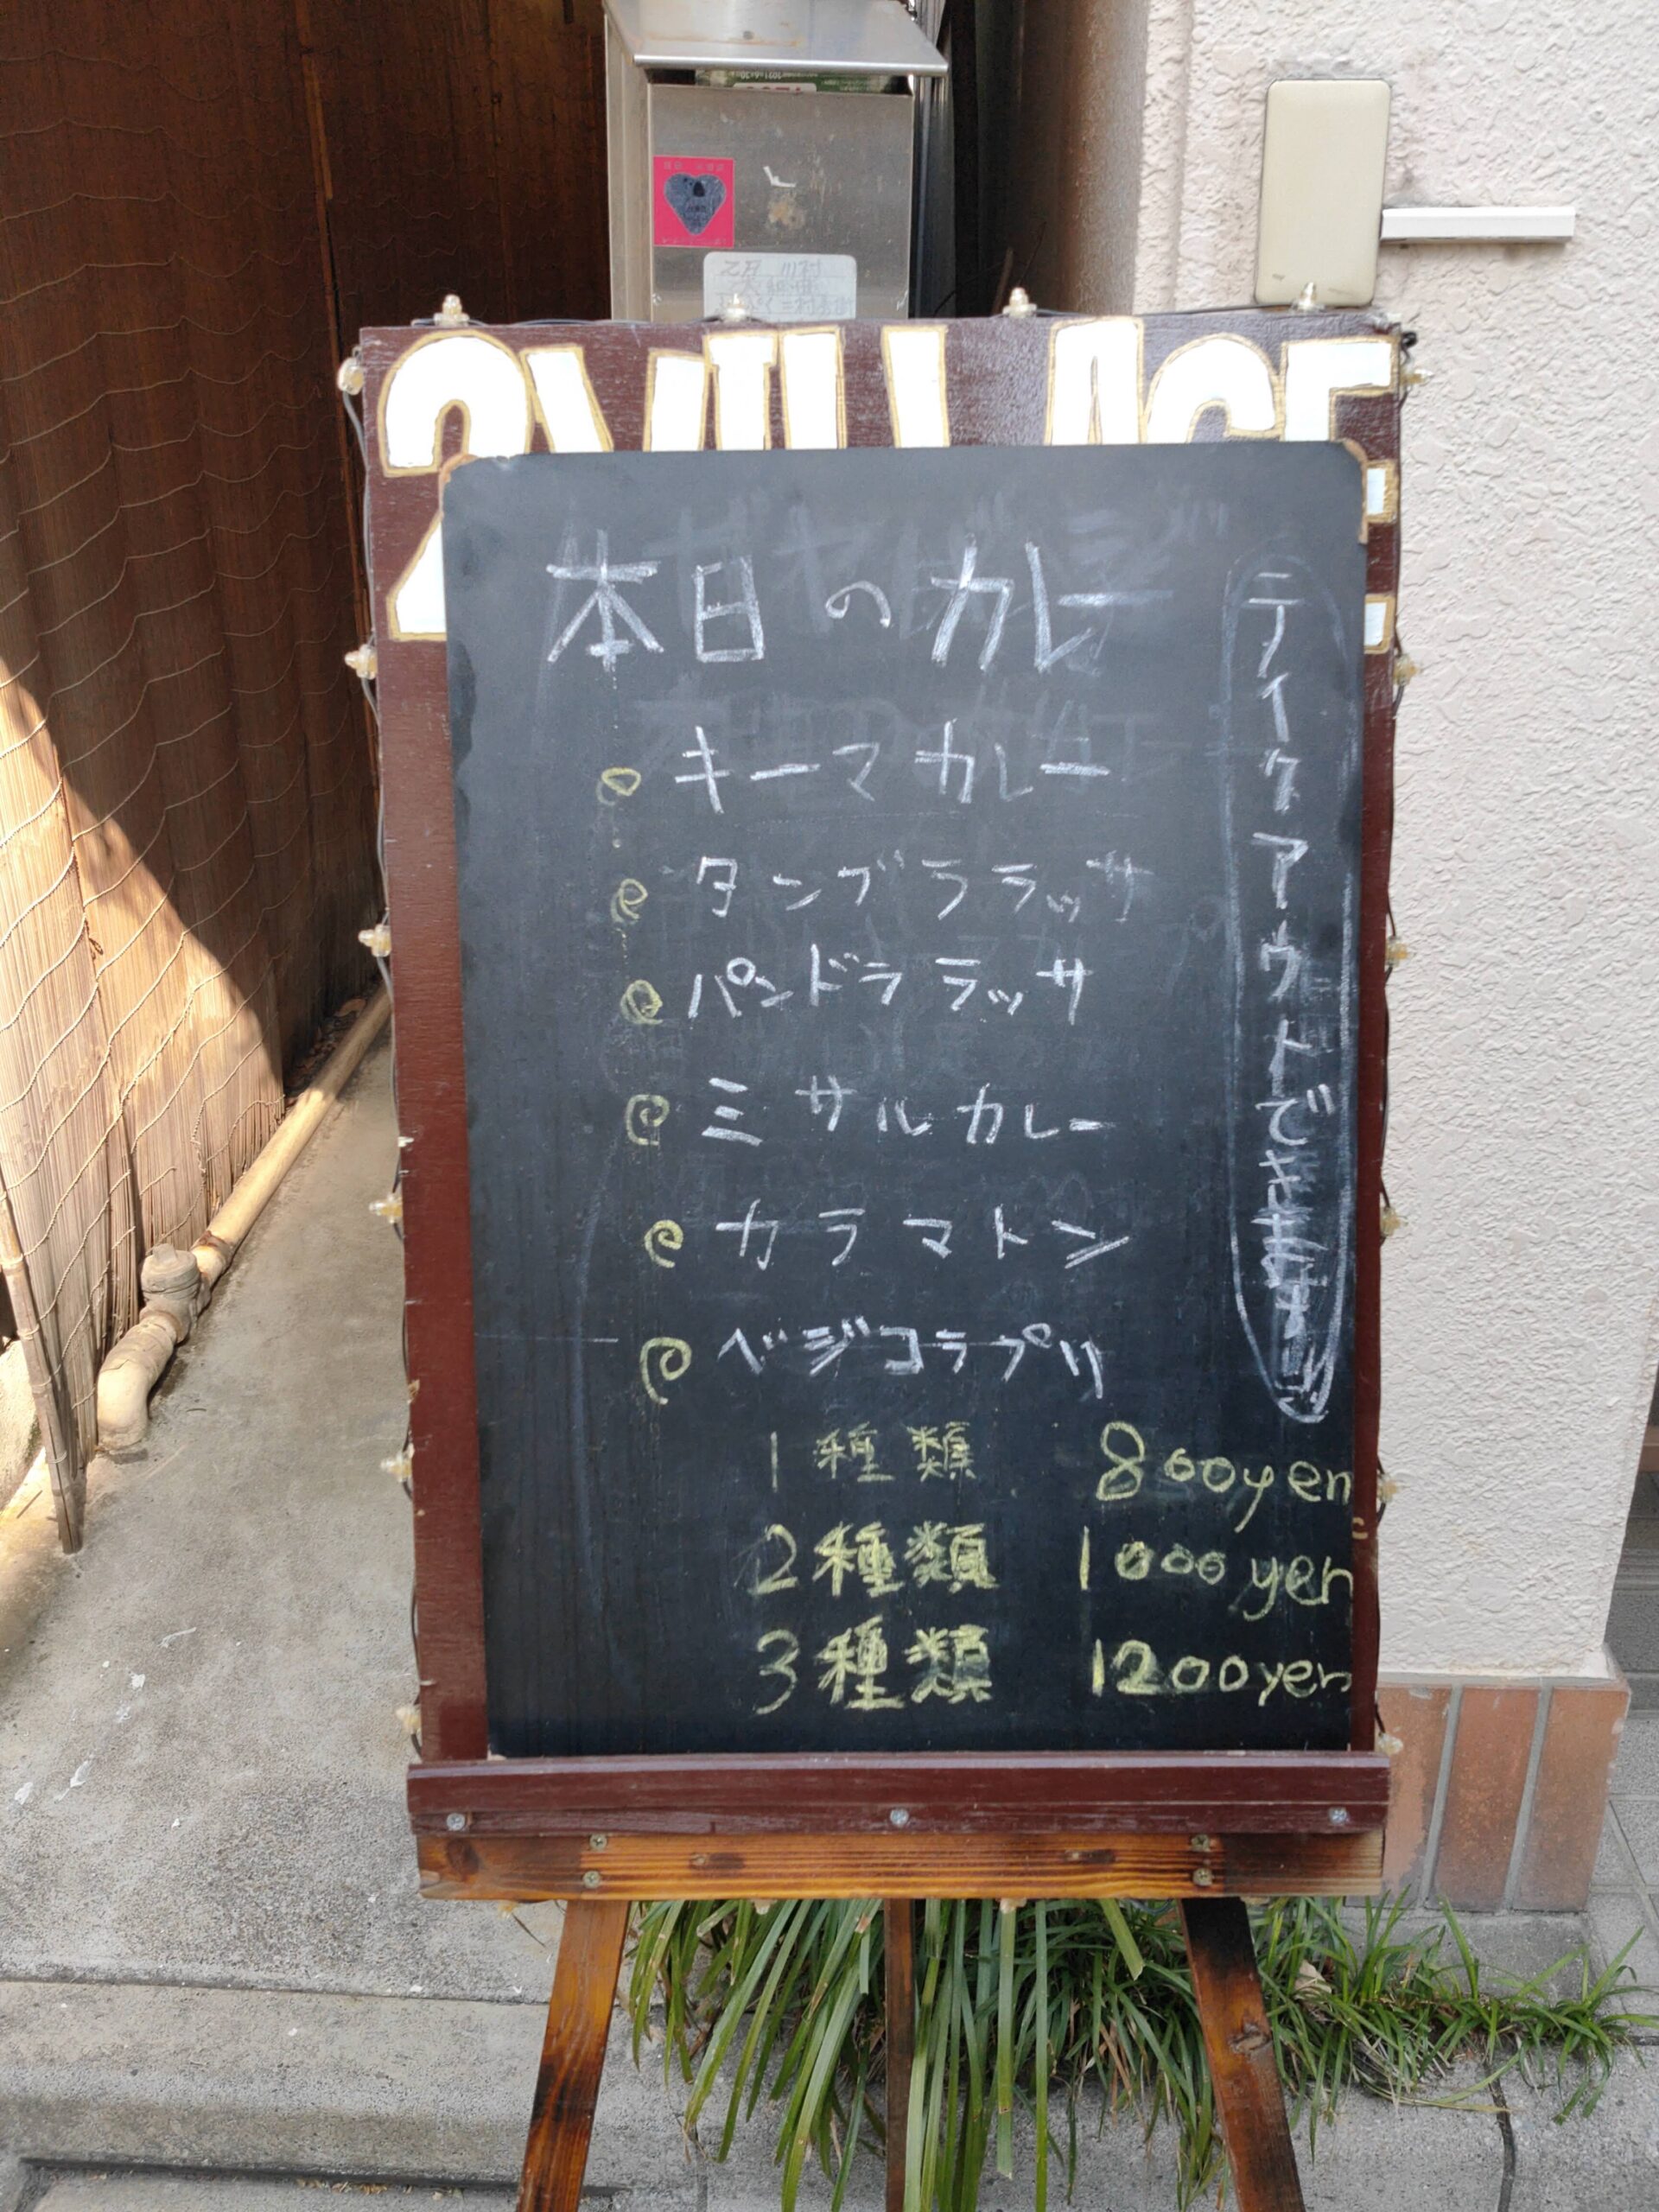 2VILLAGE
本日のカレー
キーマカレー
タンブララッサ
パンドララッサ
ミサルカレー
カラマトン
ベジコラプリ
1種類 800yen
2種類 1000yen
3種類 1200yen
テイクアウトできます